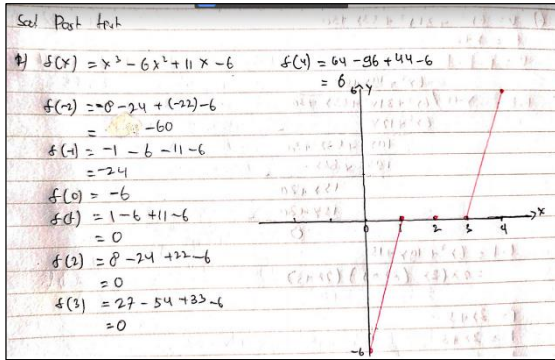 Soal Post test
1) f(x) = x³ - 6x² + 11x - 6
f(-2) = -8 - 24 + (-22) - 6
= -60
f(-1) = -1 - 6 - 11 - 6
= -24
f(0) = -6
f(1) = 1 - 6 + 11 - 6
= 0
f(2) = 8 - 24 + 22 - 6
= 0
f(3) = 27 - 54 + 33 - 6
= 0
f(4) = 64 - 96 + 44 - 6
= 6
6 y
0 1 2 3 4 x
-6